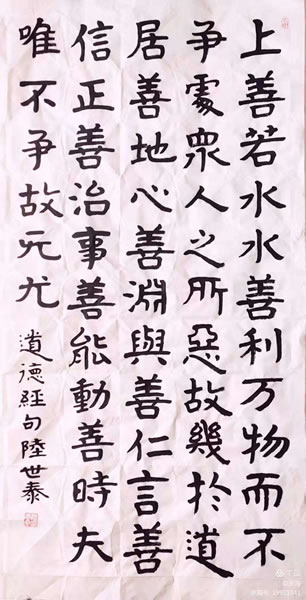 上善若水水善利万物而不
争處衆人之所惡故幾於道
居善地心善淵與善仁言善
信正善治事善能動善時夫
唯不争故无尤
道德經句陸世泰